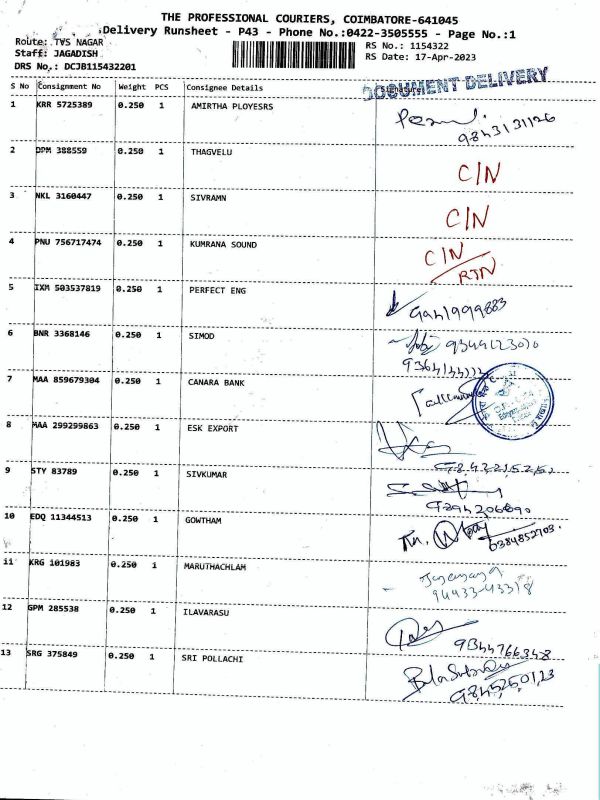 THE PROFESSIONAL COURIERS, COIMBATORE-641045
Delivery Runsheet - P43 - Phone No.:0422-3505555 - Page No.:1
Route: TVS NAGAR
Staff: JAGADISH
DRS No,: DCJB115432201
RS No.: 1154322
RS Date: 17-Apr-2023
DOCUMENT DELIVERY
S No Consignment No Weight PCS Consignee Details Signature
1 KRR 5725389 0.250 1 AMIRTHA PLOYESRS
9843131126
2 DPM 388559 0.250 1 THAGVELU C/N
3 NKL 3160447 0.250 1 SIVRAMN C/N
4 PNU 756717474 0.250 1 KUMRANA SOUND C/N
RTN
5 IXM 503537819 0.250 1 PERFECT ENG
6 BNR 3368146 0.250 1 SIMOD
7 MAA 859679304 0.250 1 CANARA BANK
8 MAA 299299863 0.250 1 ESK EXPORT
9 STY 83789 0.250 1 SIVKUMAR
10 EDQ 11344513 0.250 1 GOWTHAM
11 KRG 101983 0.250 1 MARUTHACHLAM
94433-43318
12 GPM 285538 0.250 1 ILAVARASU
9344766348
13 SRG 375849 0.250 1 SRI POLLACHI